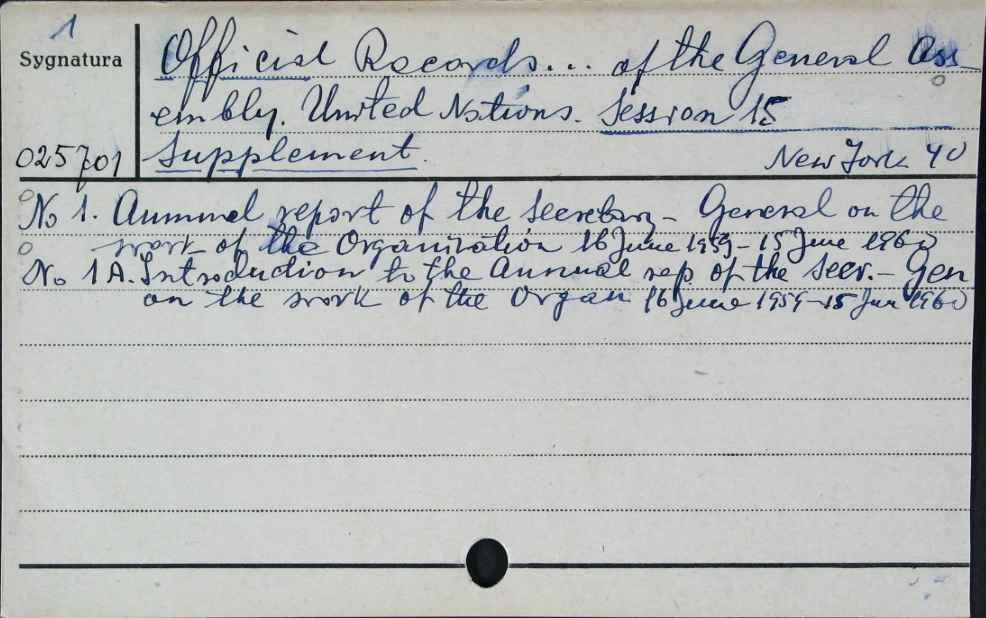 1
Sygnatura
Official Records... of the General Ass-
embly. United Nations. Session 15
025701 Supplement. New York 40
No 1. Annual report of the Secretary-General on the
work of the Organisation 16 June 1959-15 June 1960
No 1A. Introduction to the Annual rep. of the Secr.-Gen
on the work of the Organ 16 June 1959-15 Jun 1960